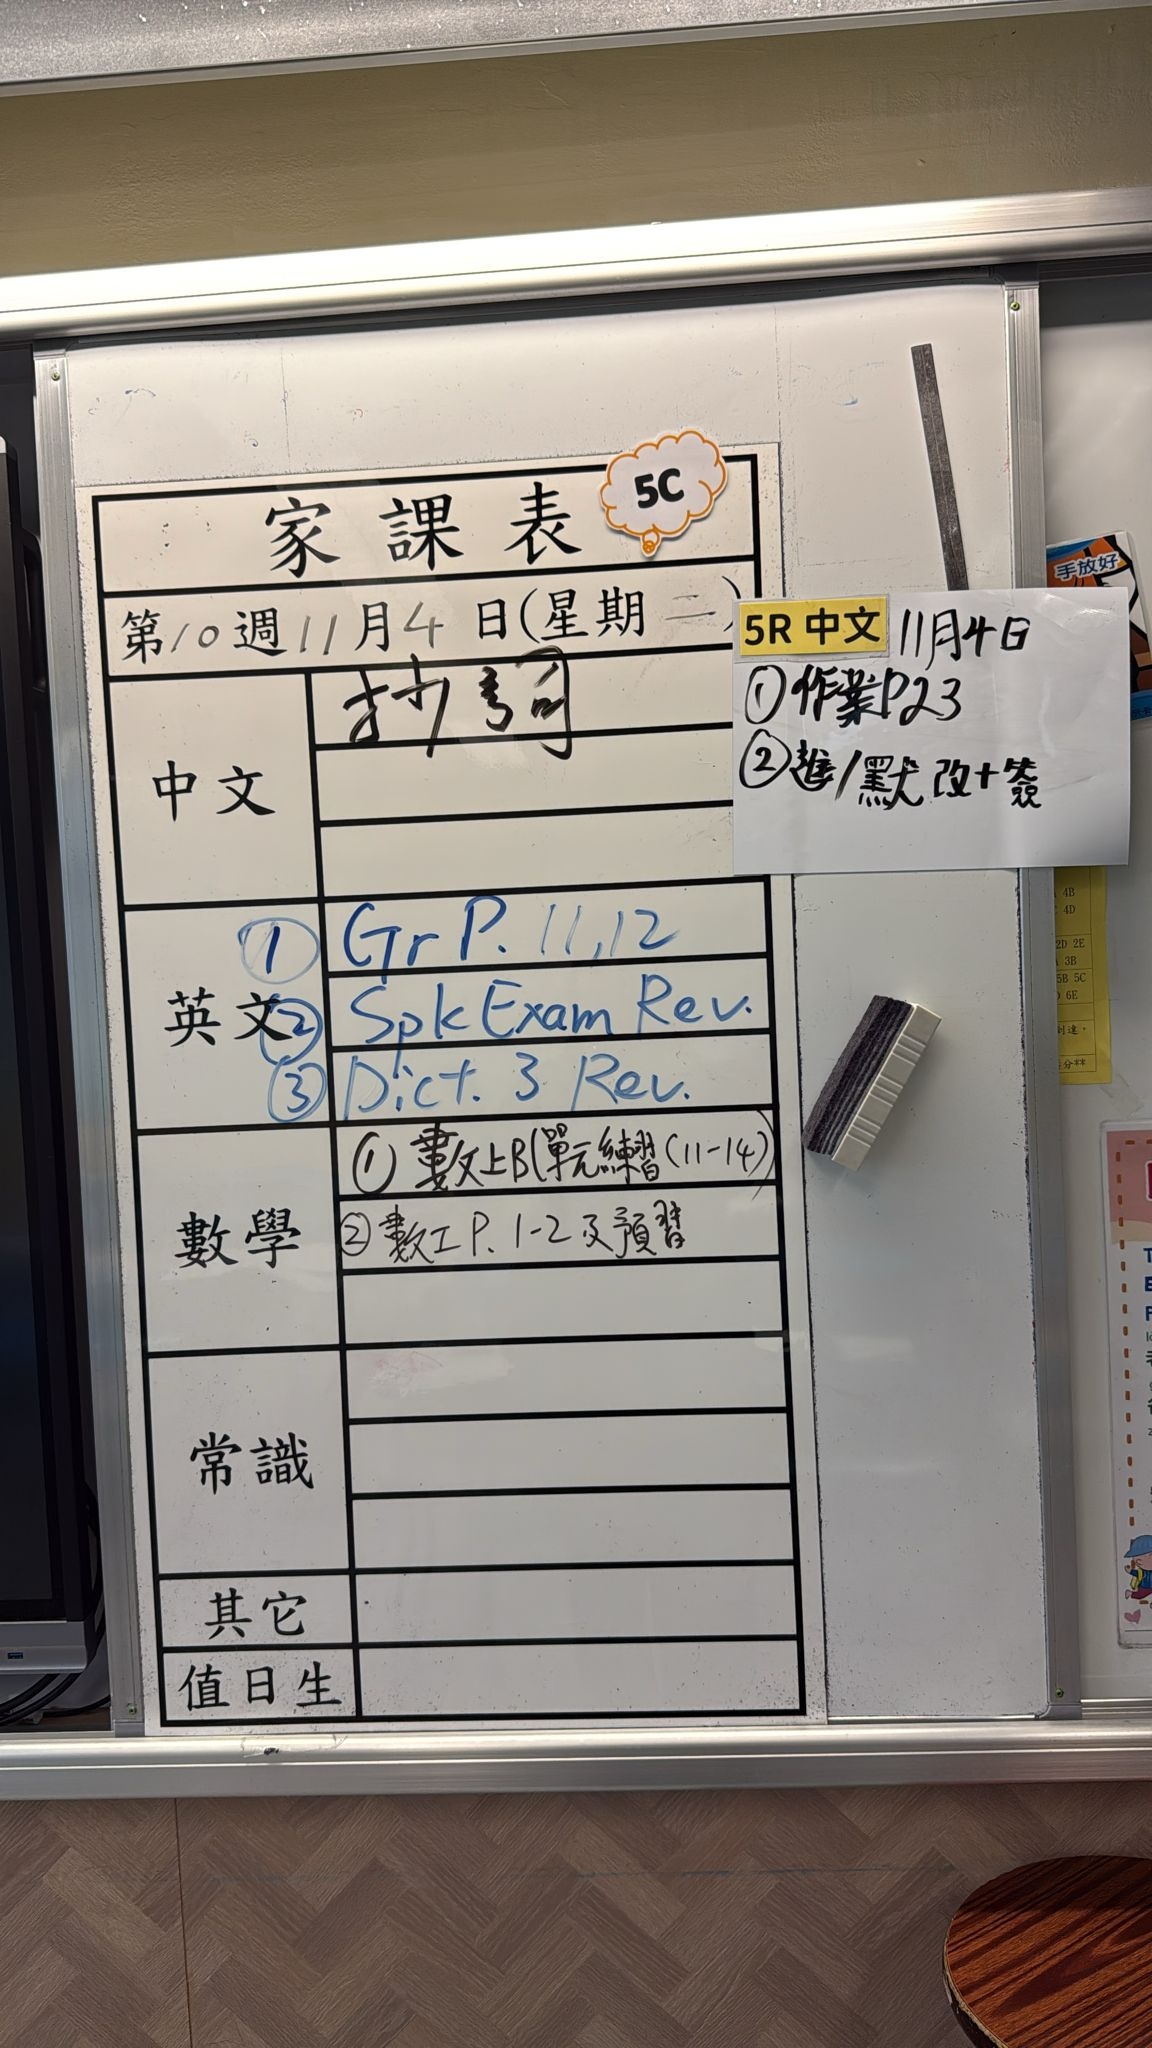 家課表
5C
第10週11月4日(星期二)
中文
抄詞
5R 中文 11月4日
①作業P23
②進/默改+簽
英文
① Gr P. 11,12
② Spk Exam Rev.
③ Dict. 3 Rev.
數學
① 數上B(單元練習(11-14)
② 數工P. 1-2及預習
常識
其它
值日生
手放好
4B
4D
2D 2E
3B
5B 5C
6E